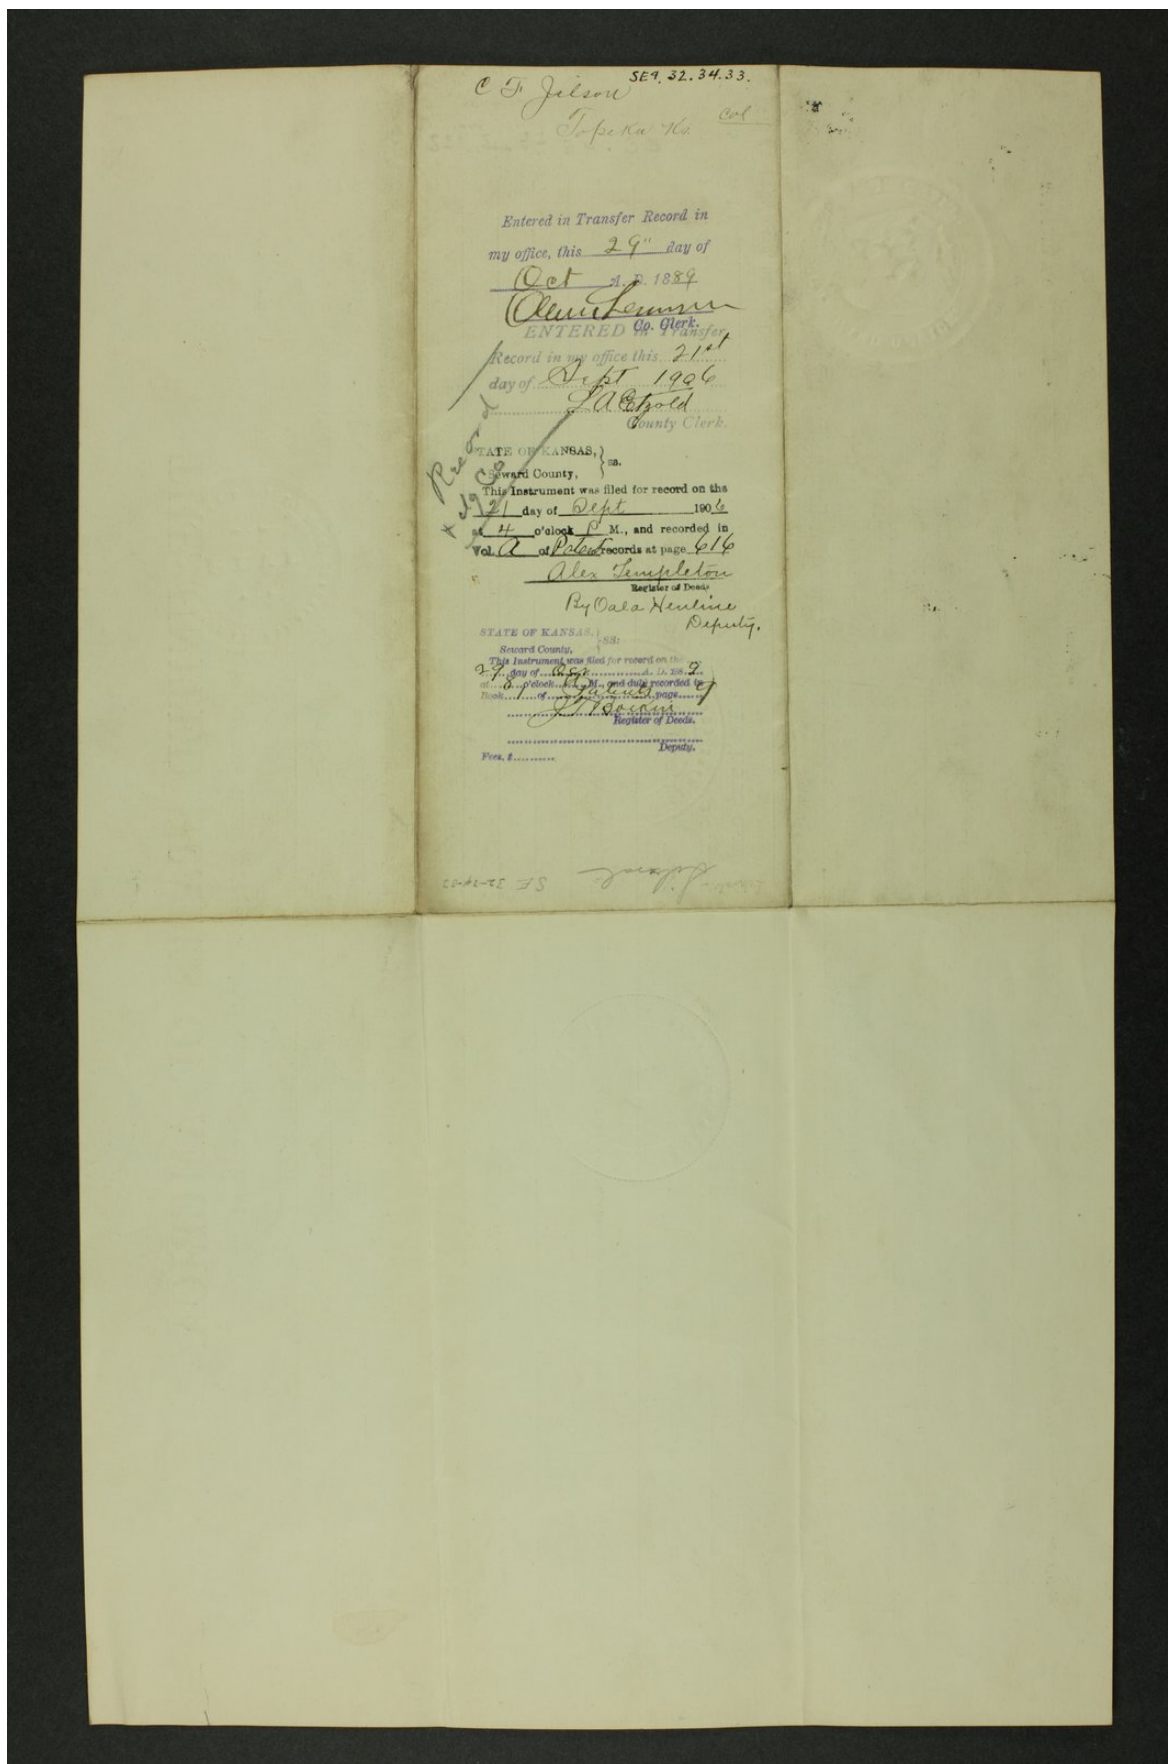 SE4. 32. 34. 33.
C F Jilson
Topeka Ks. Col
Entered in Transfer Record in
my office, this 29" day of
Oct A. D. 1889
Co. Clerk.
ENTERED in Transfer
Record in my office this 21st
day of Sept 1906
L A Etzold
County Clerk.
STATE OF KANSAS, } ss.
Seward County,
This Instrument was filed for record on the
21 day of Sept 1906
at 4 o'clock P M., and recorded in
Vol. A of Patent records at page 616
Alex Templeton
Register of Deeds
By Oala Henline
Deputy.
STATE OF KANSAS, } SS:
Seward County,
This Instrument was filed for record on the
29 day of Oct A. D. 188 9
at o'clock M., and duly recorded in
Book of Patents page 9
Register of Deeds.
Deputy.
Fees, $